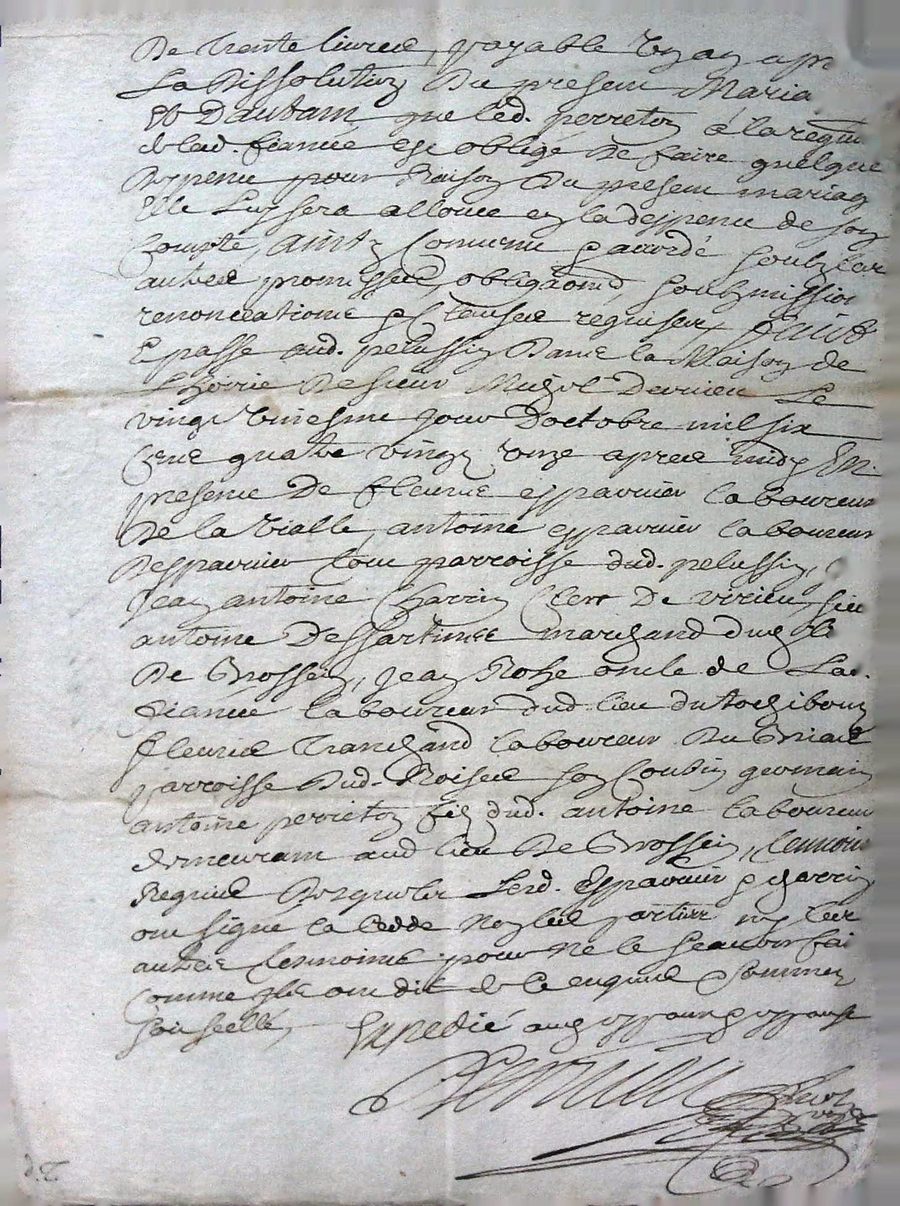 De trente livres, payable un an apr
La Dissolution Du present Maria
Et D'autant que led. perreton à la requi
de lad. fiancée est obligé De faire quelque
Despence pour Raison Du present mariag
Elle Luy sera allouée en la despence de son
Compte, ainsy Convenu & accordé soubz les
autres promesses, obligaons, soubzmission
renonciations & Clauses requises, faict
& passé aud. pelussin Dans la Maison de
De sieur Devrieu Le
vingt uniesme jour Doctobre mil six
Cent quatre vingz onze apres midy En
presence De fleurie espavrier laboureur
De la Vialle, antoine espavrier laboureur
Despavrier tous parroisse dud. pelussin,
Jean antoine Charrin Clerc De virieu, sieu
antoine Dessartines marchand du
De Brossin, Jean Rohe oncle de Lad.
fiancée laboureur dud. lieu du
fleurie Tranchand laboureur Du
parroisse Dud. Roisey son Cousin germain
antoine perreton filz dud. antoine laboureur
demeurant aud. lieu De Brossin, temoins
Requis Desquelz Lesd. Espavrier & Charrin
ont signé la Cedde Non les parties ny les
autres temoins pour ne le scavoir fai
Comme ilz ont dit de ce enquis & sommez
soit scellé, Expedié
Devrieu